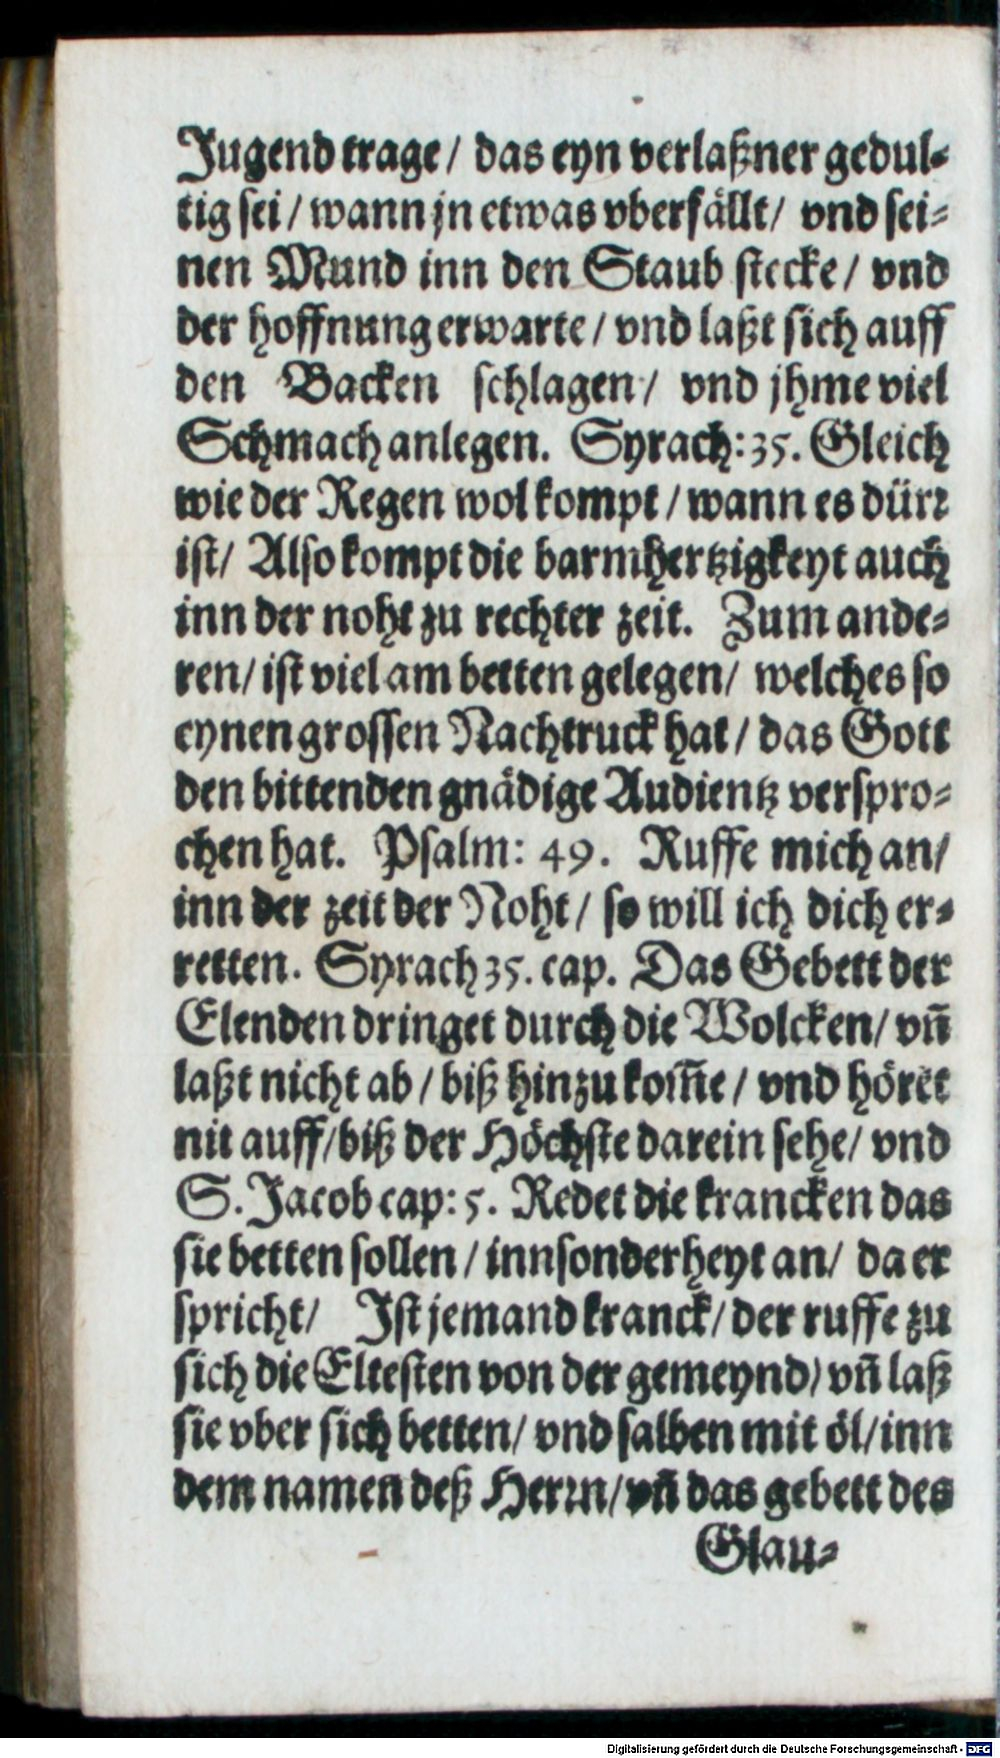 Jugend trage/ das eyn verlaßner gedul-
tig sei/ wann jn etwas vberfällt/ vnd sei-
nen Mund inn den Staub stecke/ vnd
der hoffnung erwarte/ vnd laßt sich auff
den Backen schlagen/ vnd jhme viel
Schmach anlegen. Syrach: 35. Gleich
wie der Regen wol kompt/ wann es dürr
ist/ Also kompt die barmhertzigkeyt auch
inn der noht zu rechter zeit. Zum ande-
ren/ ist viel am betten gelegen/ welches so
eynen grossen Nachtruck hat/ das Gott
den bittenden gnädige Audientz verspro-
chen hat. Psalm: 49. Ruffe mich an/
inn der zeit der Noht/ so will ich dich er-
retten. Syrach 35. cap. Das Gebett der
Elenden dringet durch die Wolcken/ vn̄
laßt nicht ab/ biß hinzu kom̄e/ vnd höret
nit auff/ biß der Höchste darein sehe/ vnd
S. Jacob cap: 5. Redet die krancken das
sie betten sollen/ innsonderheyt an/ da er
spricht/ Ist jemand kranck/ der ruffe zu
sich die Eltesten von der gemeynd/ vn̄ laß
sie vber sich betten/ vnd salben mit öl/ inn
dem namen deß Herrn/ vn̄ das gebett des
Glau-
Digitalisierung gefördert durch die Deutsche Forschungsgemeinschaft - DFG